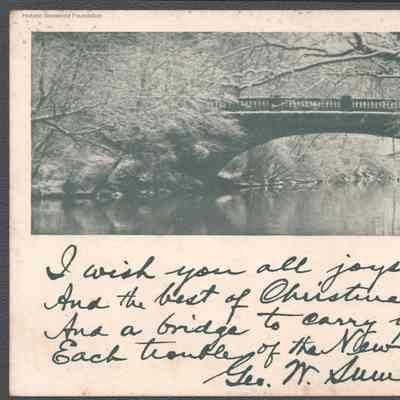 Historic Deerfield Foundation
I wish you all joys
And the best of Christm
And a bridge to carry
Each trouble of the New
Geo. W. Sum